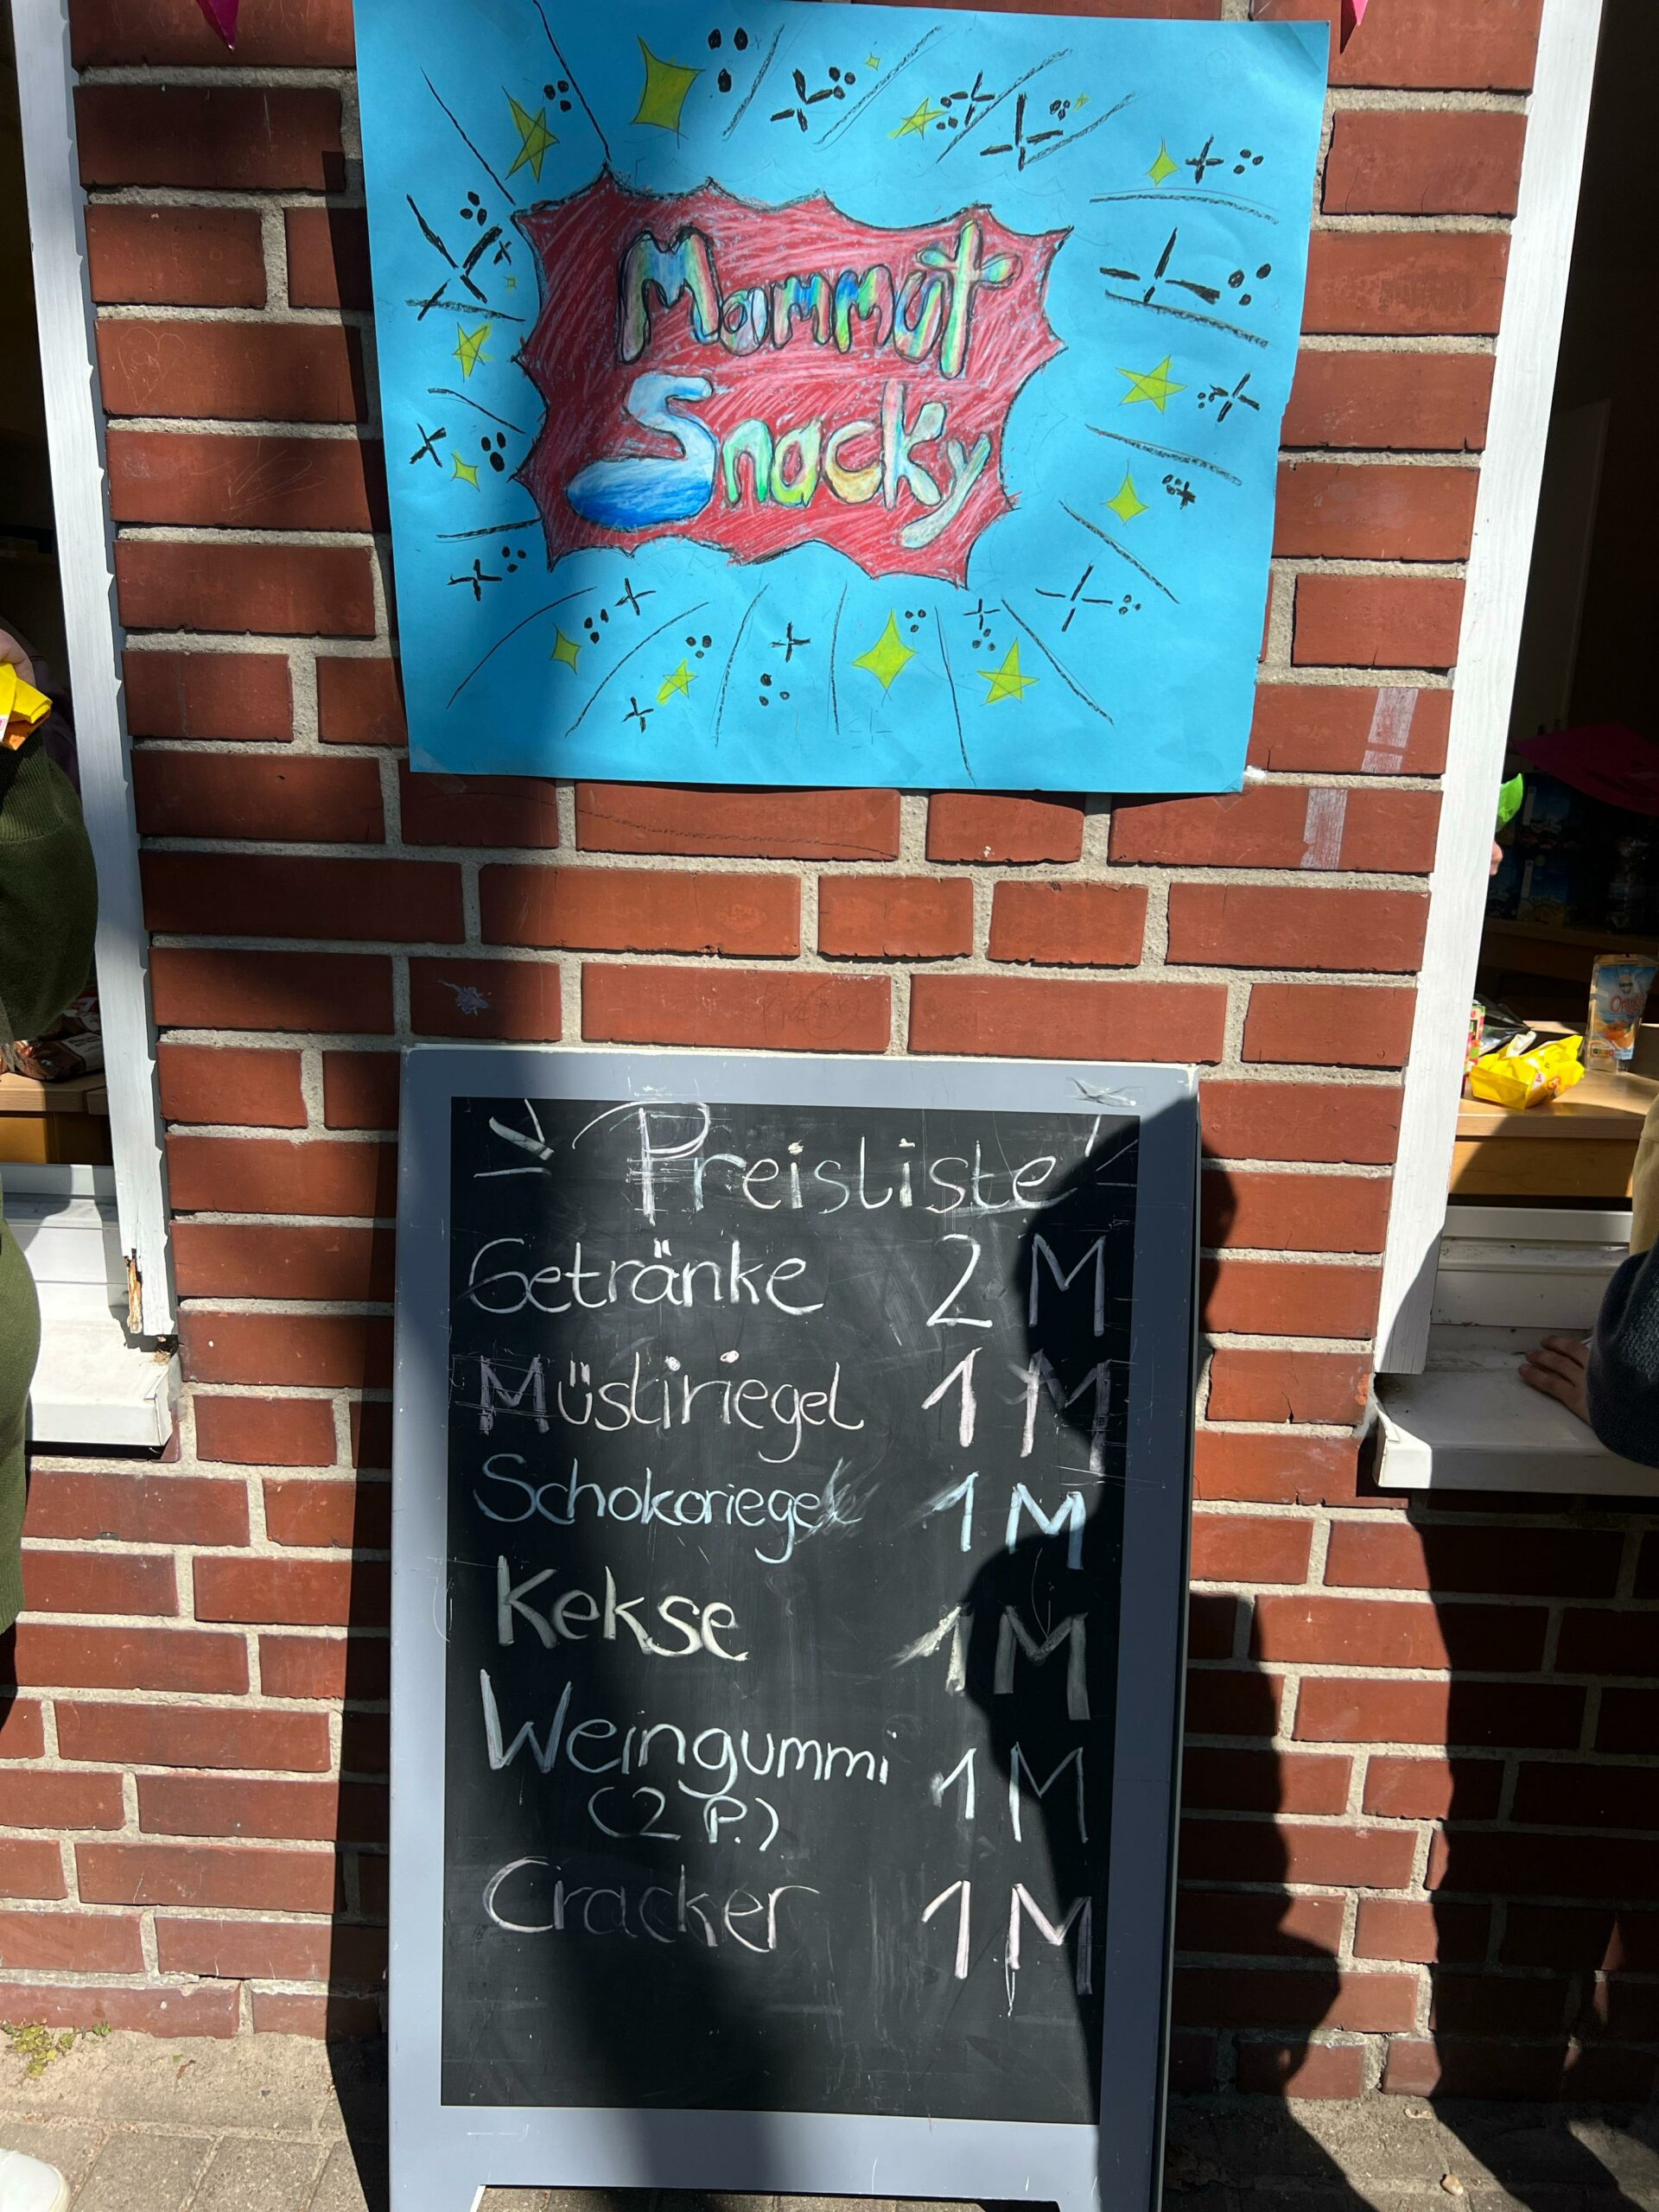 Mammut
Snacky
Preisliste
Getränke 2 M
Müsliriegel 1 M
Schokoriegel 1 M
Kekse 1 M
Weingummi 1 M
(2 P.)
Cracker 1 M